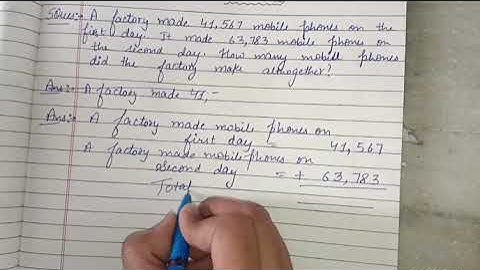 5 Ques:- A factory made 41,567 mobile phones on the
first day. It made 63,783 mobile phones on
the second day. How many mobile phones
did the factory make altogether?
Ans:- A factory made 41,-
Ans:- A factory made mobile phones on
first day = 41,567
A factory made mobile phones on
second day = + 63,783
Total